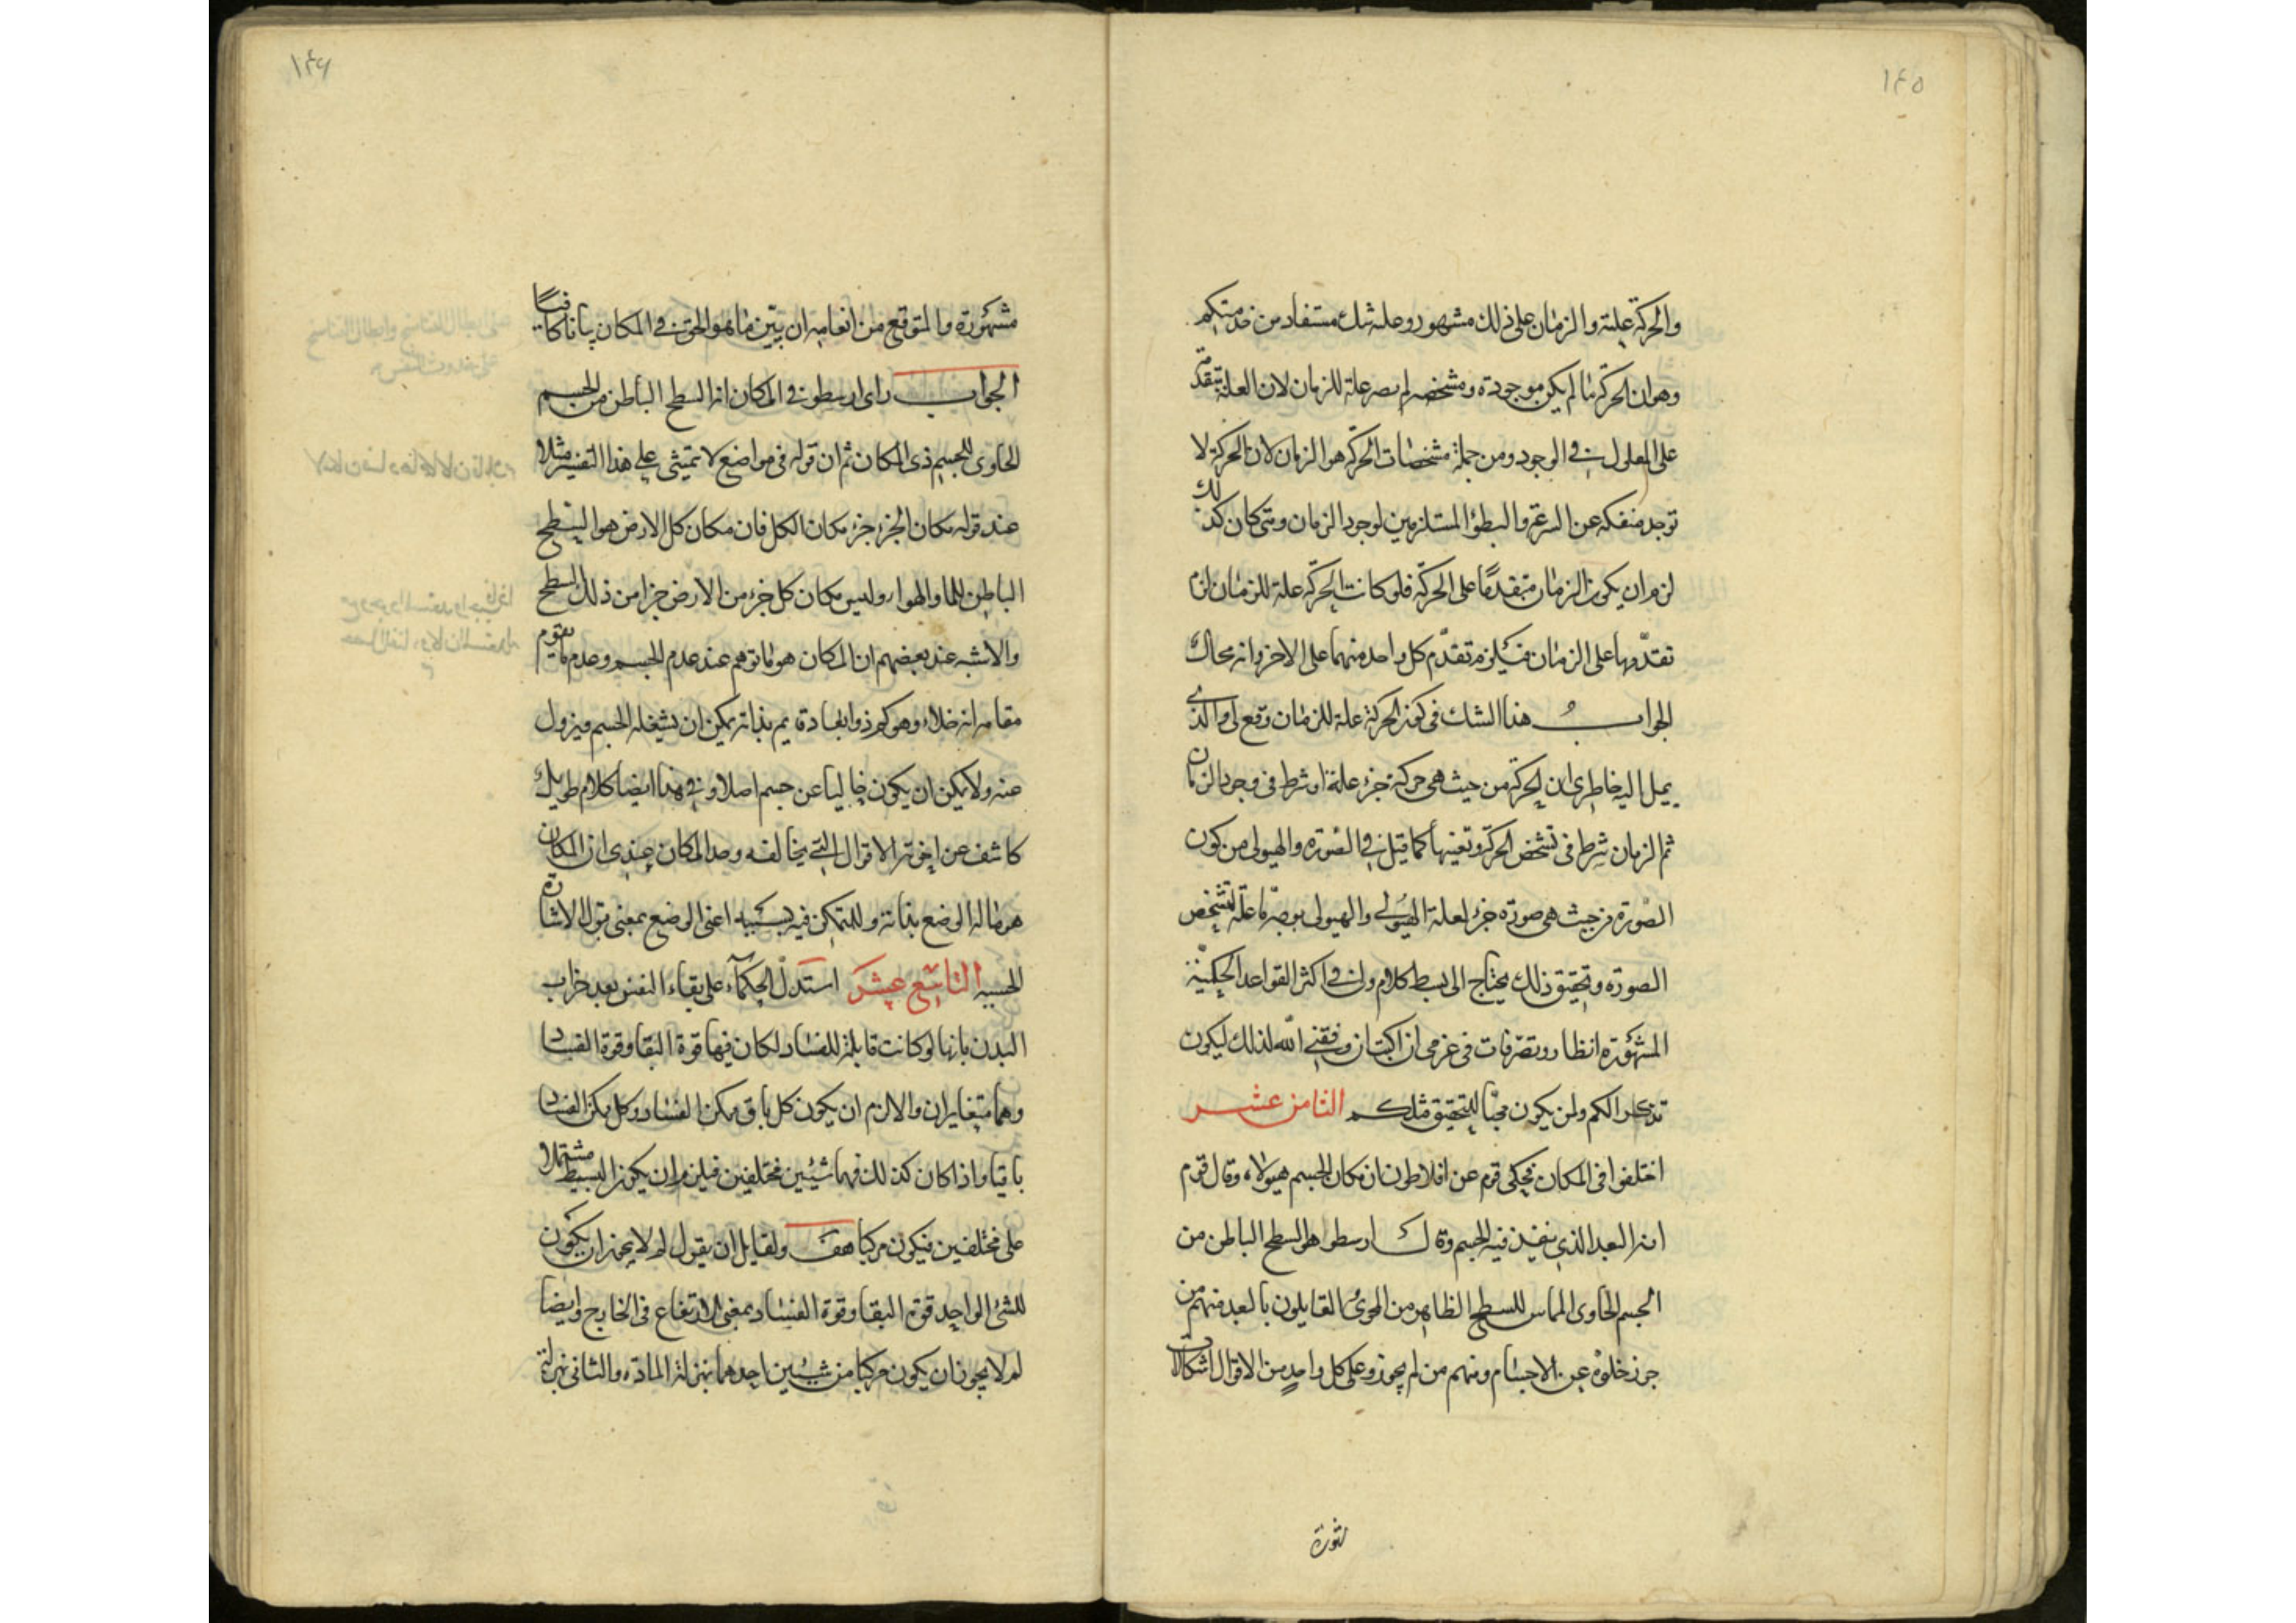 ١٤٥
والحركة علية والزمان على ذلك مشهور وعليه شك مستفاد من خدمتكم
وهو ان الحركة ما لم يكن موجودة ومشخصه لم يصر علة للزمان لان العلة متقدمة
على المعلول فى الوجود ومن جملة مشخصات الحركة هو الزمان لان الحركة لا
توجد منفكه عن السرعة والبطؤ المستلزمين لوجود الزمان ومتى كان كذلك
لزم ان يكون الزمان متقدمًا على الحركة فلو كانت الحركة علة للزمان لزم
تقدّمها على الزمان فيلزم تقدّم كل واحد منهما على الاخر وانه محال
الجواب هذا الشك فى كون الحركة علة للزمان وقع لى والذى
يميل اليه خاطرى ان الحركة من حيث هى حركة جزء علة او شرط فى وجود الزمان
ثم الزمان شرط فى تشخص الحركة وتعينها كما قيل فى الصورة والهيولى من كون
الصورة من حيث هى صورة جزء لعلة الهيولى والهيولى بوجه ما علة لتشخص
الصورة وتحقيق ذلك يحتاج الى بسط كلام ولى فى اكثر القواعد الحكمية
المشهورة انظار وتصرفات فى عزمى ان اكتبها ان وفقنى الله لذلك ليكون
تذكرا لكم ولمن يكون محبّا للتحقيق مثلكم الثامن عشر
اختلفوا فى المكان فحكى قوم عن افلاطون ان مكان الجسم هيولاه وقال قوم
انه البعد الذى ينفذ فيه الجسم وقال ارسطو هو السطح الباطن من
الجسم الحاوى المماس للسطح الظاهر من المحوى ثم القايلون بالبعد منهم من
جوز خلوّه عن الاجسام ومنهم من لم يجوز وعلى كل واحد من الاقوال اشكالات
١٤٦
مشهورة والمتوقع من انعامه ان يبيّن ما هو الحق فى المكان بيانا كافيًا
الجواب راى ارسطو فى المكان انه السطح الباطن من الجسم
الحاوى للجسم ذى المكان ثم ان قوله فى مواضع لا تمشى على هذا التفسير مثلا
عند قوله مكان الجزء جزء مكان الكل فان مكان كل الارض هو السطح
الباطن للماء والهواء وليس مكان كل جزء من الارض جزا من ذلك السطح
والاشبه عند بعضهم ان المكان هو ما توهم عند عدم الجسم وعدم ما يقوم
مقامه انه خلاء وهو كم ذو ابعاد قايم بذاته يمكن ان يشغله الجسم ويزول
عنه ولا يمكن ان يكون خاليا عن جسم اصلا وفى هذا ايضا كلام طويل
كاشف عن الاقوال التى يخالفه وحد المكان عندى ان المكان
هو ما له الوضع بذاته وللمتمكن فيه بسببه اعنى الوضع بمعنى قبول الاشارة
الحسيه التاسع عشر استدلّ الحكماء على بقاء النفس بعد خراب
البدن بانها لو كانت قابلة للفساد لكان فيها قوة البقا وقوة الفساد
وهما متغايران والا لزم ان يكون كل باق ممكن الفساد وكل ممكن الفساد
باقيا واذا كان كذلك فهما شيئين مختلفين فيلزم ان يكون البسيط مشتملا
على مختلفين فيكون مركبا هف ولقايل ان يقول لم لا يجوز ان يكون
للشئ الواحد قوة البقا وقوة الفساد بمعنى الارتفاع فى الخارج وايضا
لم لا يجوز ان يكون مركبا من شيئين احدهما بمنزلة المادة والثانى بمنزلة